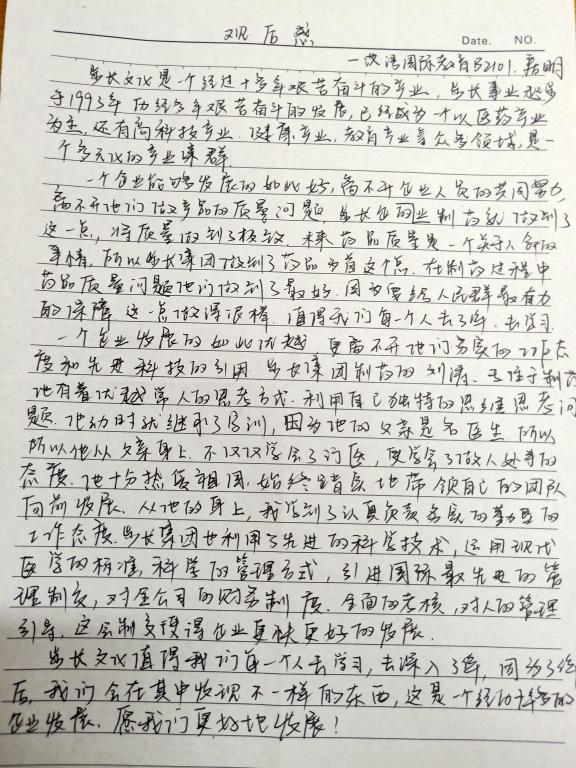 观后感
Date. NO.
一汉语国际教育B2101.
步长文化是一个经过十多年艰苦奋斗的产业,步长事业起步
于1993年历经多年艰苦奋斗的发展,已经成为一个以医药产业
为主,还有高科技产业.健康产业.教育产业等众多领域,是一
个多元化的产业集群.
一个企业能够发展的如此好,离不开企业人员的共同努力,
离不开他们做产品的质量问题.步长企业制药就做到了
这一点,将质量做到了极致.本来药品质量是一个关乎人命的
事情,所以步长集团做到了药品为首这个点.在制药过程中
药品质量问题他们做到了最好.因为要给人民群众最有力
的保障,这一点做深很棒,值得我们每一个人去了解.去学习.
一个企业发展的如此优越,更离不开他们务实的工作态
度和先进科技的引用.步长集团制药的刘涛.专注于制药
他有着优越常人的思考方式.利用自己独特的思维思考问
题.他幼时就继承了家训,因为他的父亲是名医生,所以
所以他从父亲身上.不仅仅学会了行医,更学会了做人处事的
态度.他十分热爱祖国.始终踏实地带领自己的团队
向前发展.从他的身上,我学到了认真负责务实的
工作态度.步长集团也利用了先进的科学技术,运用现代
医学的标准,科学的管理方式,引进国际最先进的管
理制度,对全公司的财务制度.全面的考核,对人的管理
引导.这会制度使得企业更快更好的发展.
步长文化值得我们每一个人去学习,去深入了解,因为了解
后,我们会在其中发现不一样的东西,这是一个经历十多年的
企业发展.愿我们更好地发展!